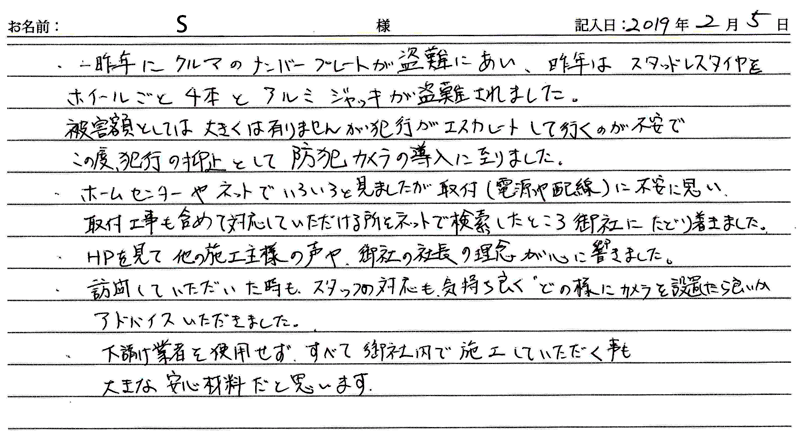 お名前： S 様 記入日：2019年2月5日
・一昨年にクルマのナンバープレートが盗難にあい、昨年はスタッドレスタイヤを
ホイールごと4本とアルミジャッキが盗難されました。
被害額としては大きくは有りませんが犯行がエスカレートして行くのが不安で
この度、犯行の抑止として防犯カメラの導入に至りました。
・ホームセンターやネットでいろいろと見ましたが取付（電源や配線）に不安に思い、
取付工事も含めて対応していただける所をネットで検索したところ御社にたどり着きました。
・HPを見て他の施工主様の声や、御社の社長の理念が心に響きました。
・訪問していただいた時も、スタッフの対応も、気持ち良く"どの様にカメラを設置したら良いか
アドバイスいただきました。
・下請け業者を使用せず、すべて御社内で施工していただく事も
大きな安心材料だと思います。